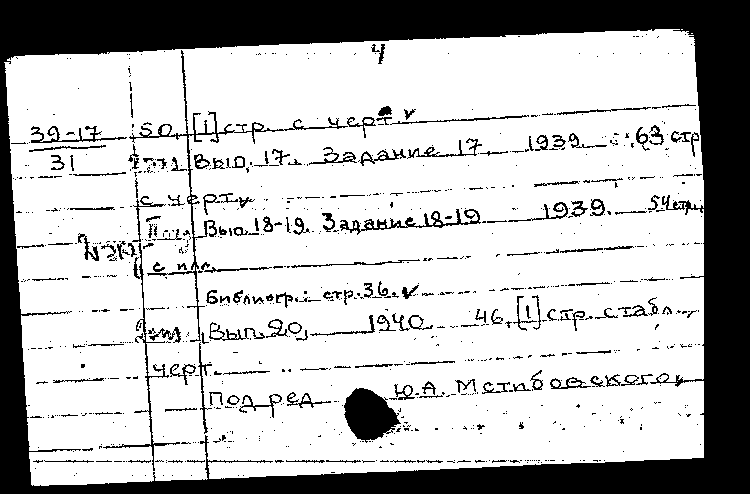 4
39-17 50, [1] стр. с черт.
31 Вып. 17. Задание 17. 1939. 63 стр
с черт.
Вып. 18-19. Задание 18-19 1939. 54 стр.,
с илл.
Библиогр.: стр. 36.
Вып. 20, 1940 46, [1] стр. с табл.,
черт.
Под ред Ю.А. Мстибовского,